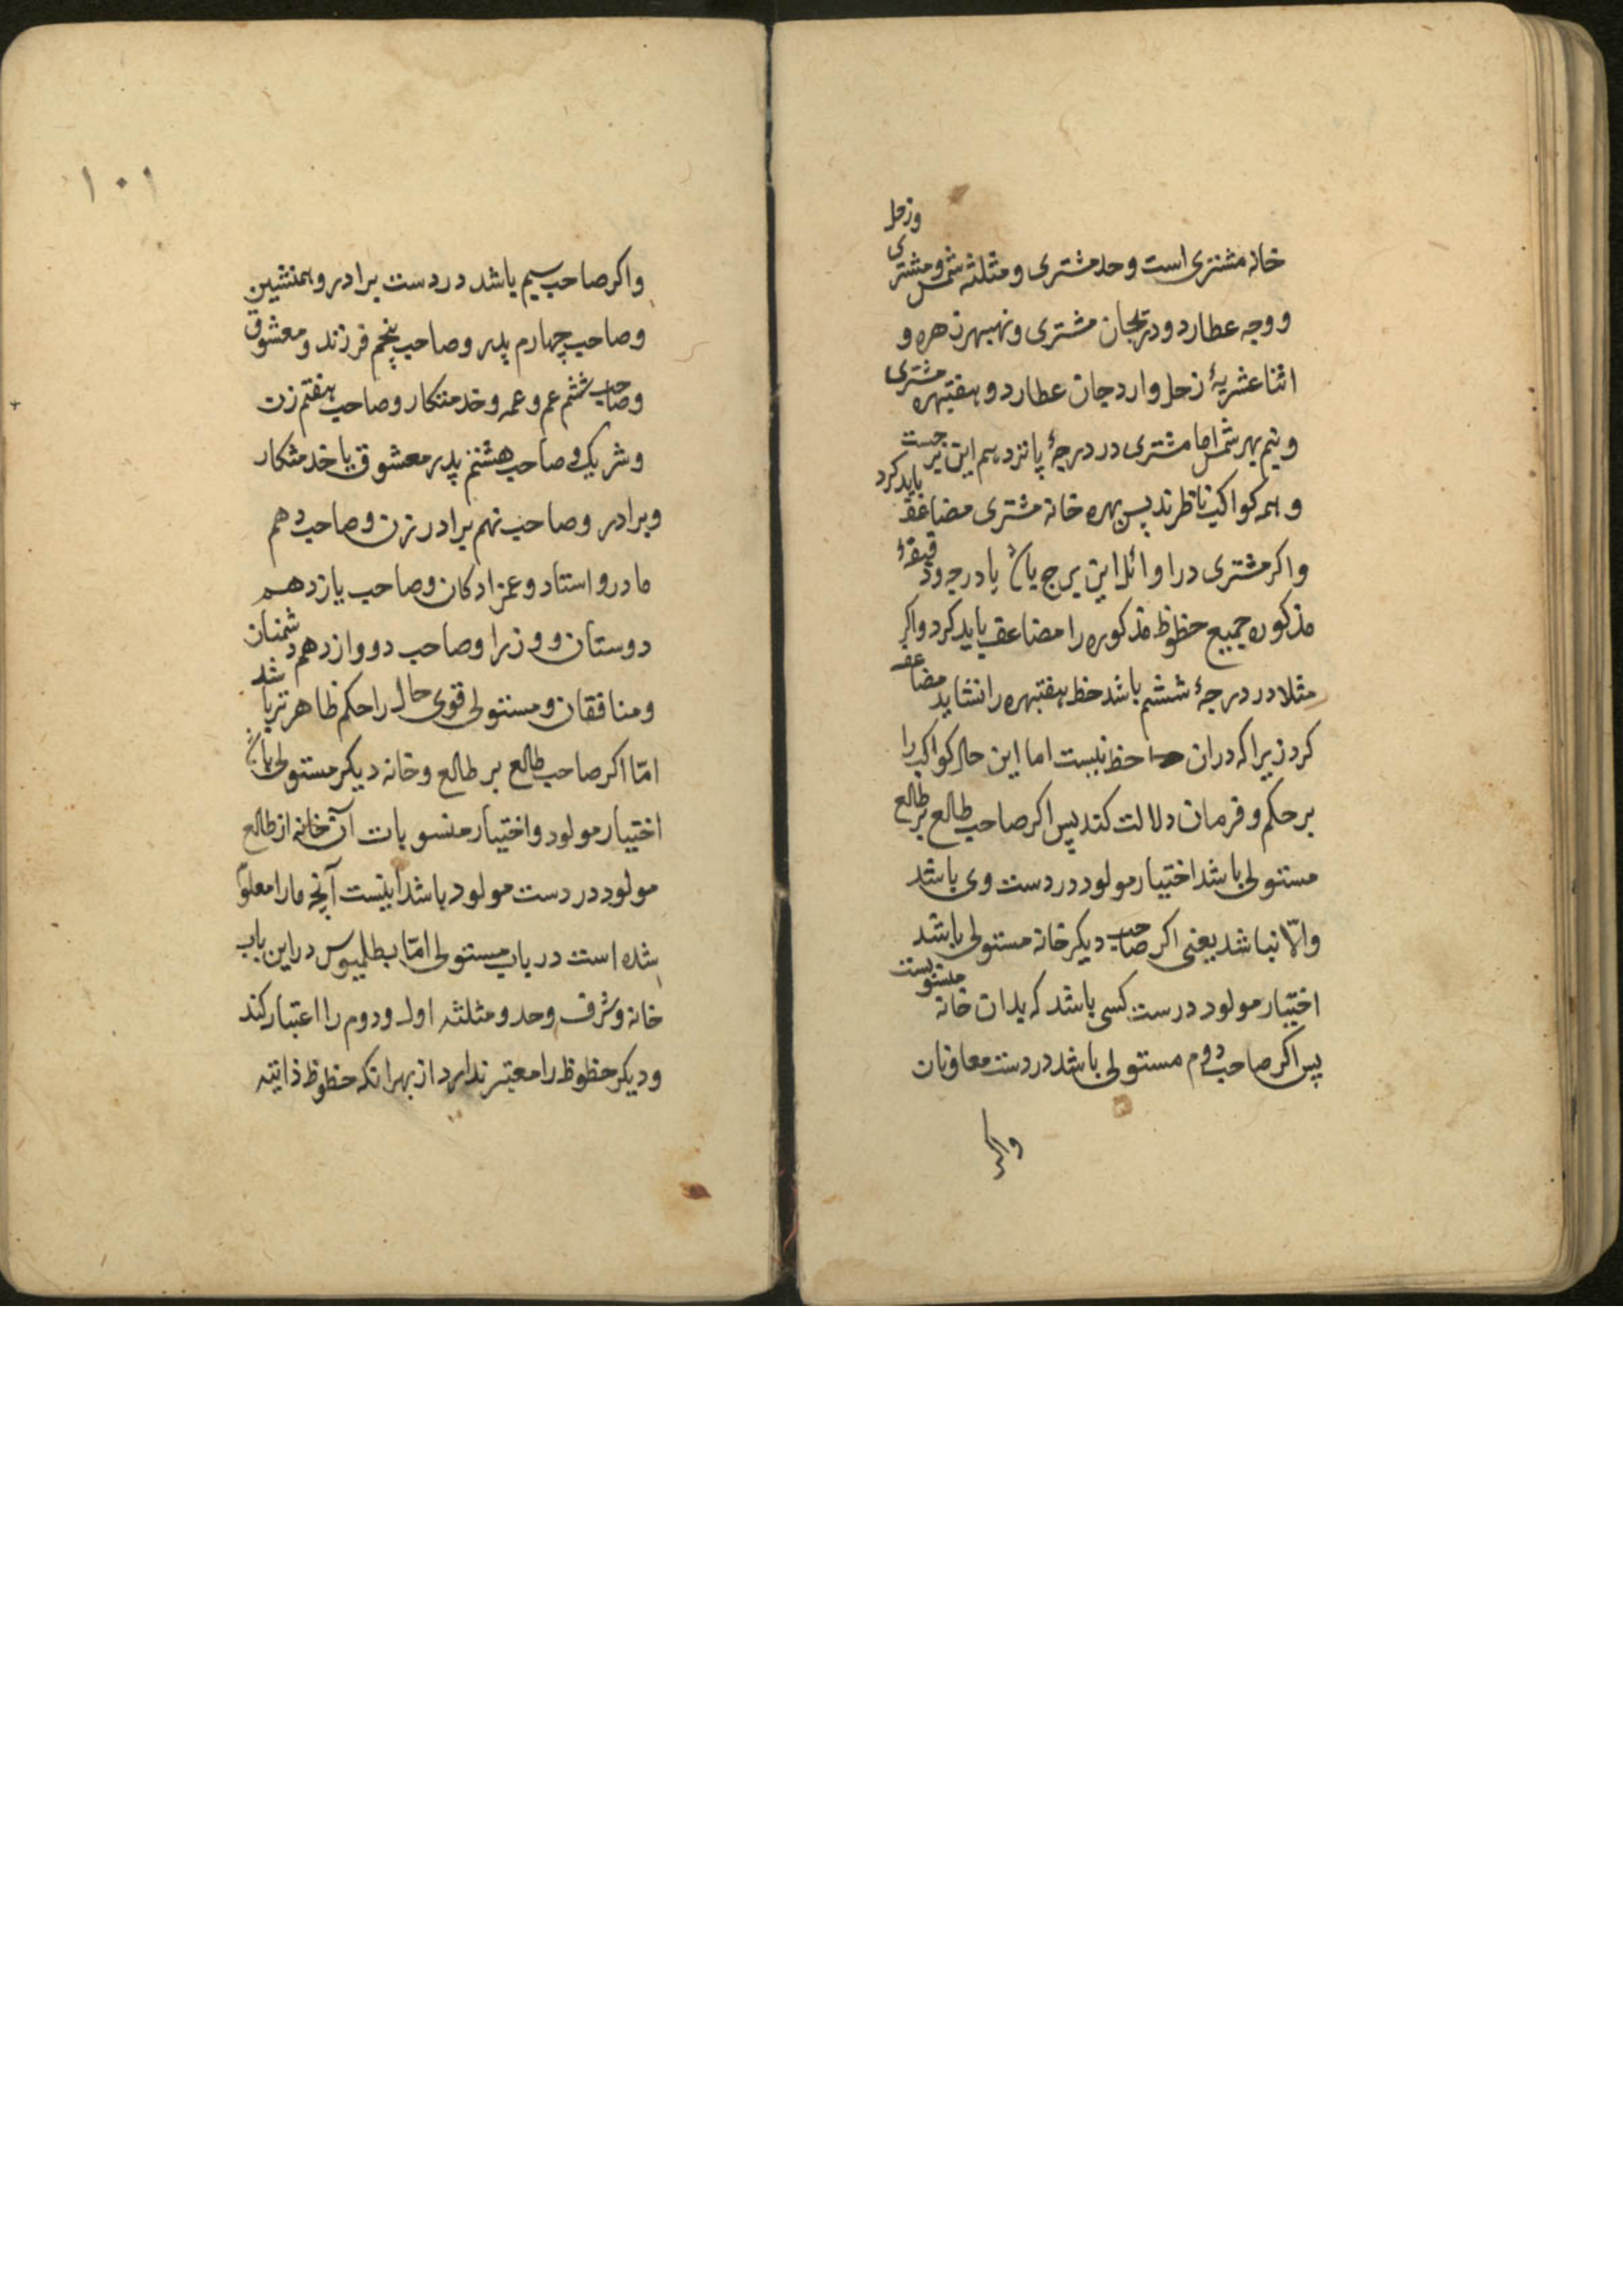 خانه مشتری است و حد مشتری و مثلثه شمس و مشتری و زحل
و وجه عطارد و دریجان مشتری و نهبهر زهره و
اثنا عشریهٔ زحل و اردجان عطارد و هفتبهره مشتری
و نیم بهر شمس اما مشتری در درجهٔ پانزدهم این برجست
و همه کواکب ناظرند پس بهره خانه مشتری مضاعف باید کرد
و اکر مشتری در اوائل این برج باشد یا درجه و دقیقهٔ
مذکوره جمیع حظوظ مذکوره را مضاعف باید کرد و اکر
مثلا در درجهٔ ششم باشد حظ هفتبهره را نشاید مضاعف
کرد زیرا که در ان حظ نیست اما این حال کواکب را
بر حکم و فرمان دلالت کند پس اکر صاحب طالع بر طالع
مستولی باشد اختیار مولود در دست وی باشد
و الّا نباشد یعنی اکر صاحب دیکر خانه مستولی باشد
اختیار مولود در ست کسی باشد که بدان خانه مستولیست
پس اکر صاحب دوم مستولی باشد در دست معاونان
واکر
۱۰۱
و اکر صاحب سیم باشد در دست برادر و همنشین
و صاحب چهارم پدر و صاحب پنجم فرزند و معشوق
و صاحب ششم عم و عمه و خدمتکار و صاحب هفتم زن
و شریک و صاحب هشتم پدر معشوق یا خدمتکار
و برادر و صاحب نهم برادر زن و صاحب دهم
مادر و استاد و عمزادکان و صاحب یازدهم
دوستان و وزرا و صاحب دووازدهم دشمنان
و منافقان و مستولی قوی حال را حکم ظاهرتر باشد
امّا اکر صاحب طالع بر طالع و خانه دیکر مستولی باشد
اختیار مولود و اختیار منسوبات آن خانه از طالع
مولود در دست مولود باشد اینست آنچه ما را معلوم
شده است در باب مستولی امّا بطلمیوس در این باب
خانه و شرف و حد و مثلثه اول و دوم را اعتبار کند
و دیکر حظوظ را معتبر ندارد از بهر انکه حظوظ ذاتیه